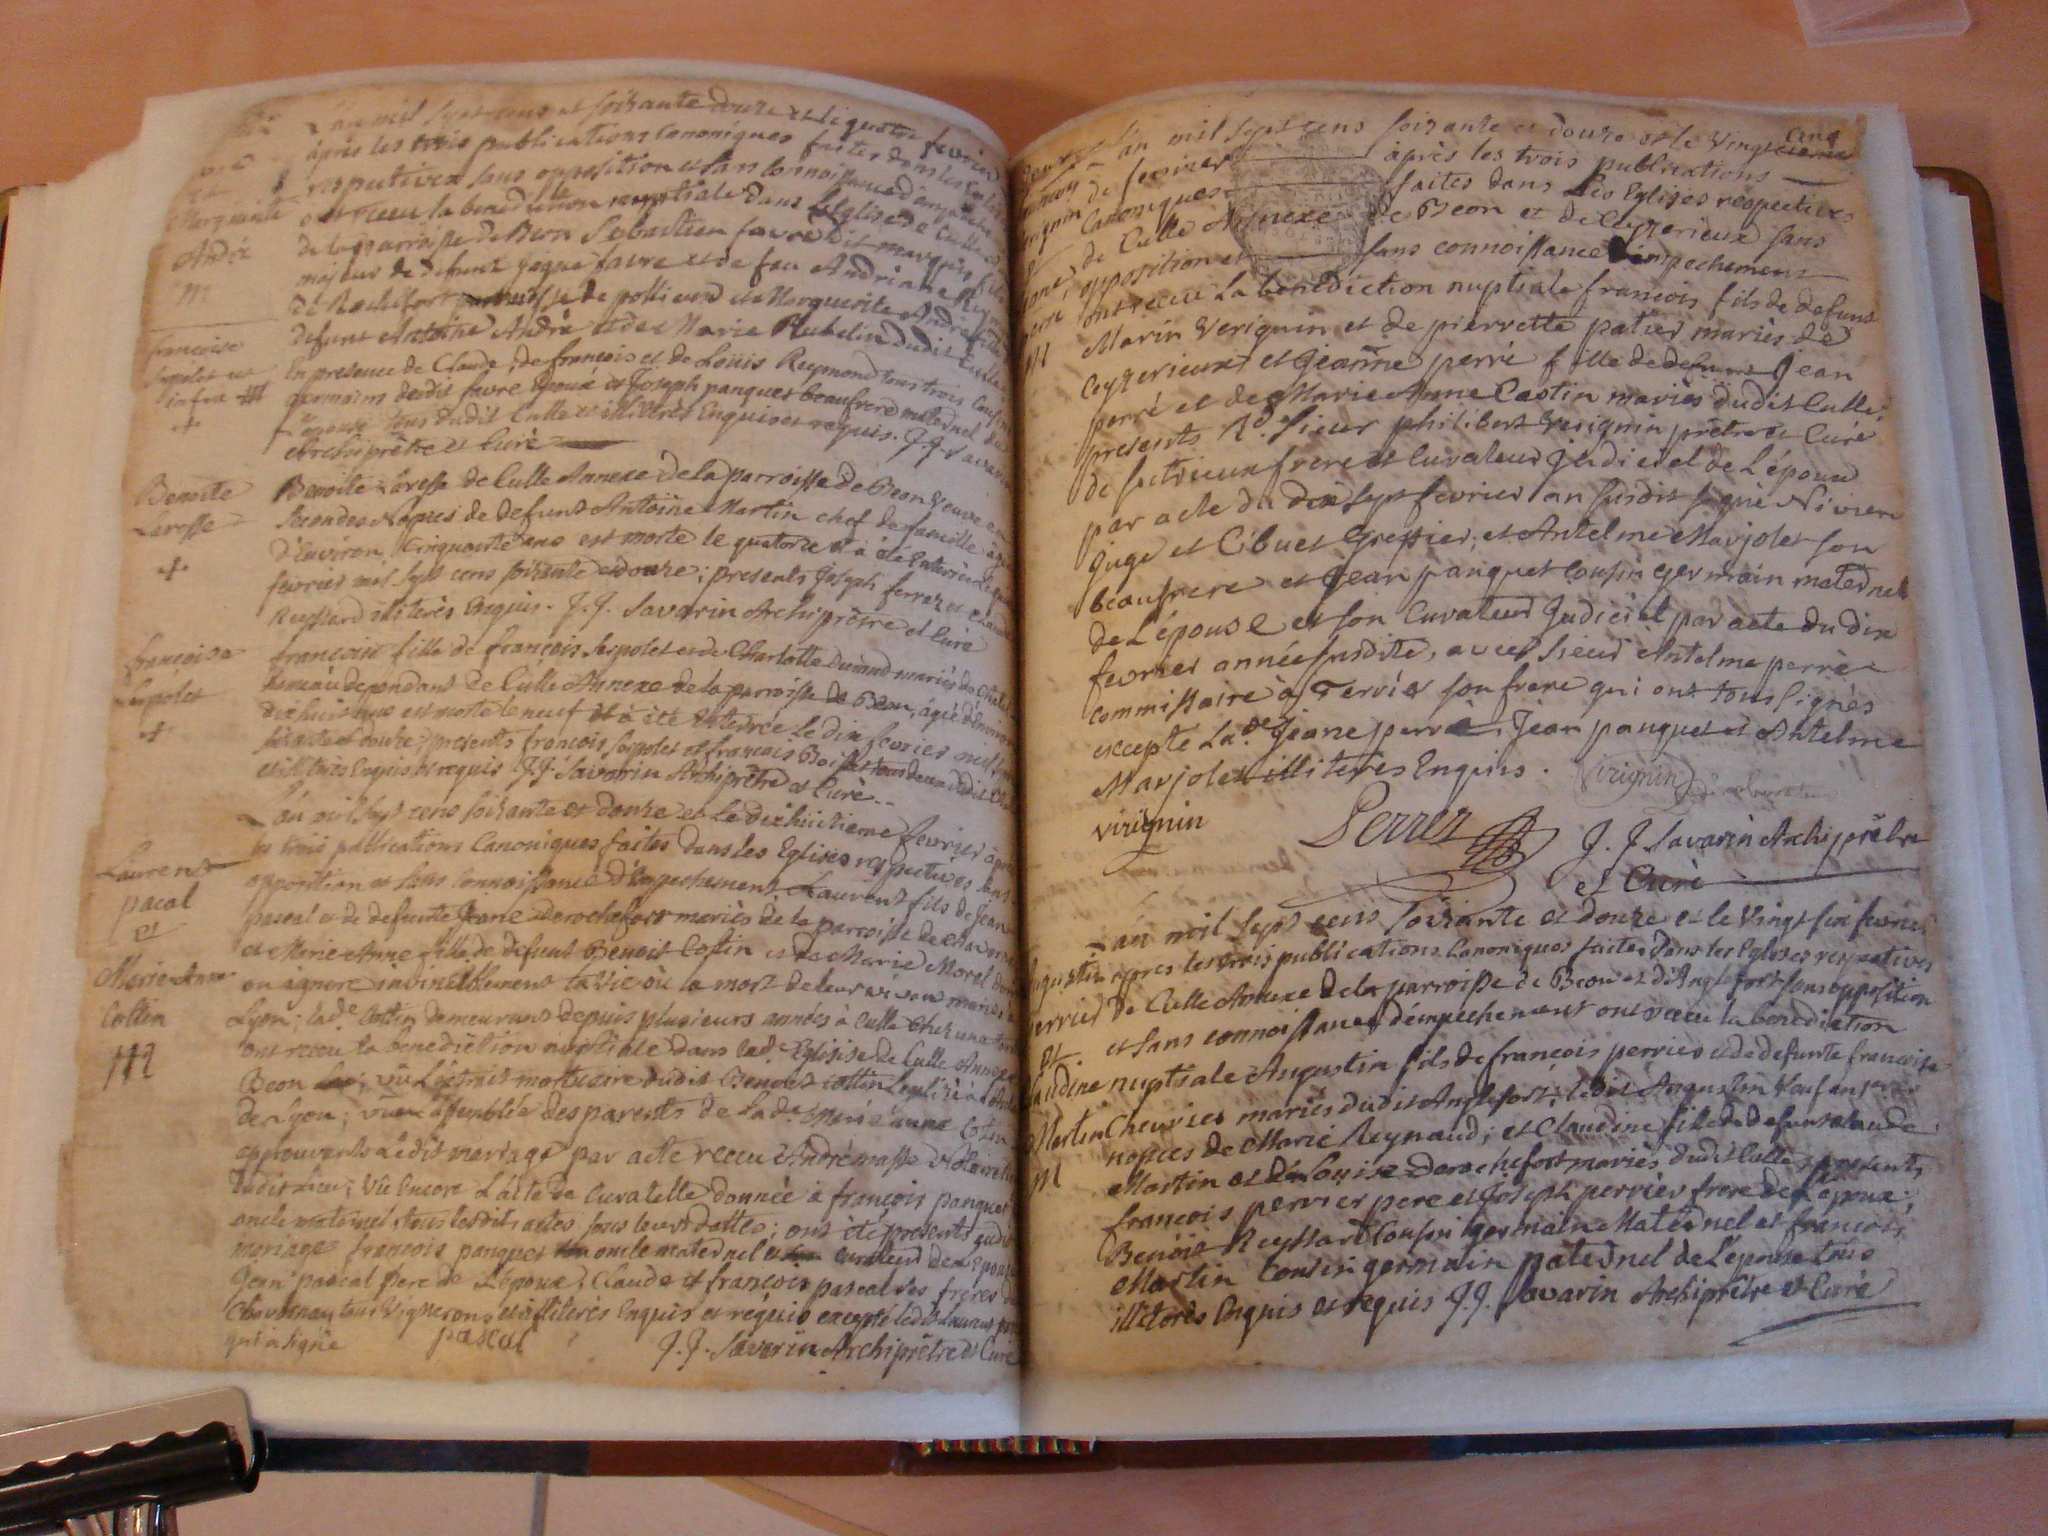 L'an mil sept cens et soixante douze et le quatre fevrier
après les trois publications Canoniques faites dans les
respectives sans opposition et sans connoissance d'
ont receu la benediction nuptiale dans l'Eglise de Culle
de la parroisse de Beon Sebastien favre dit
majeur de defunt favre et de feu Andriane
Marguerite
André
M
de Rochefort de pollieud et Marguerite André fille
defunt Antoine André et de Marie Rubelin dudit Culle
En presence de Claude, de françois et de Louis Reymond tous trois
germains dudit favre Epoux et Joseph panquet beaufrere maternel du
L'epouse tous dudit Culle et illiterés Enquis et requis. J. J. Savarin
Archiprêtre et Curé
françoise
Serpolet est
infra
+
Benoite
Laresse
+
Benoite Laresse de Culle Annexe de la parroisse de Beon Veuve en
secondes Nopces de defunt Antoine Martin chef de famille agée
d'Environ Cinquante ans est morte le quatorze et a été Enterrée le
fevrier mil sept cens soixante et douze; presents Joseph ferrez et
Reyssard illiterés Enquis. J. J. Savarin Archiprêtre et Curé
françoise
Serpolet
+
françoise fille de françois Serpolet et de Charlotte Durand mariés de
hameau dependant de Culle Annexe de la parroisse de Beon, agée d'Environ
dixhuit ans est morte le neuf et a été Enterrée le dix fevrier mil
soixante et douze; presents françois Serpolet et françois tous deux dudit
et illiterés Enquis et requis J. J. Savarin Archiprêtre et Curé
Laurent
pacal
et
Marie Anne
Cottin
M
L'an mil sept cens soixante et douze et le dixhuitieme fevrier après
les trois publications Canoniques faites dans les Eglises respectives sans
opposition et sans connoissance d'Empechement Laurent fils de Jean
pascal et de defunte Jeane Derochefort mariés de la parroisse de
et Marie Anne fille de defunt Benoit Cottin et de Marie Morel dont
on ignore la vie où la mort de leur vivant mariés à
Lyon; lad.e Cottin demeurant depuis plusieurs années à Culle chez une
ont receu la benediction nuptiale dans lad.e Eglise de Culle Annexe
Beon; vû L'extrait mortuaire dudit Benoit Cottin
de Lyon; vû l'assemblée des parents de lad.e Marie anne Cottin
approuvants ledit mariage par acte receu André masse Notaire
dudit lieu; vû Encore L'acte de Curatelle donnée à françois panquet
oncle maternel tous lesdits actes sous leurs dattes; ont été presents audit
mariage françois panquet oncle maternel curateur de L'Epouse
Jean pascal pere de L'Epoux, Claude et françois pascal ses freres de
tous Vignerons et illiterés Enquis et requis excepté ledit Laurent
qui a signé pascal J. J. Savarin Archiprêtre et Curé
L'an mil sept cens soixante et douze et le Vingt cinq
de fevrier après les trois publications
Canoniques faites dans Les Eglises respectives
de Culle Annexe de Beon et de Ceyzerieux sans
opposition et sans connoissance d'impechement
ont receu La benediction nuptiale françois fils de defunt
Marin Verignin et de pierrette patier mariés de
M
Ceyzerieux et Jeanne perré fille de defunt Jean
perré et de Marie Anne Castin mariés dudit Culle;
presents R.d Sieur philibert Verignin prêtre et Curé
de frere et Curateur Judiciel de L'époux
par acte du dix sept fevrier an susdit signé Nivier
Juge et Cibuet Greffier, et Antelme Marjolet son
beaufrere et Jean panquet cousin germain maternel
de L'épouse et son Curateur Judiciel par acte du dix
fevrier année susdite, avec Sieur Antelme perré
commissaire à Terrier son frere qui ont tous signés
excepte La.de Jeane perré, Jean panquet et Antelme
Marjolet illiterés Enquis. Virignin
virignin Perrez J. J. Savarin Archiprêtre
et Curé
L'an mil sept cens soixante et douze et le Vingt six fevrier
apres les trois publications Canoniques faites dans les Eglises respectives
de Culle Annexe de la parroisse de Beon et d'Anglefort sans opposition
et sans connoissance d'empechement ont receu la benediction
nuptiale Augustin fils de françois perrier et de defunte françoise
Chevrier mariés dudit Anglefort; ledit Augustin Veuf en
nopces de Marie Reynaud; et Claudine fille de defunt Claude
Martin et de Louise Derochefort mariés dudit Culle; presents
françois perrier pere et Joseph perrier frere de L'époux;
Benoit Reyssard Cousin germain Maternel et francois
Martin Cousin germain paternel de L'épouse tous
illiterés Enquis et requis J. J. Savarin Archiprêtre et Curé
Augustin
perrier
et
Claudine
Martin
M